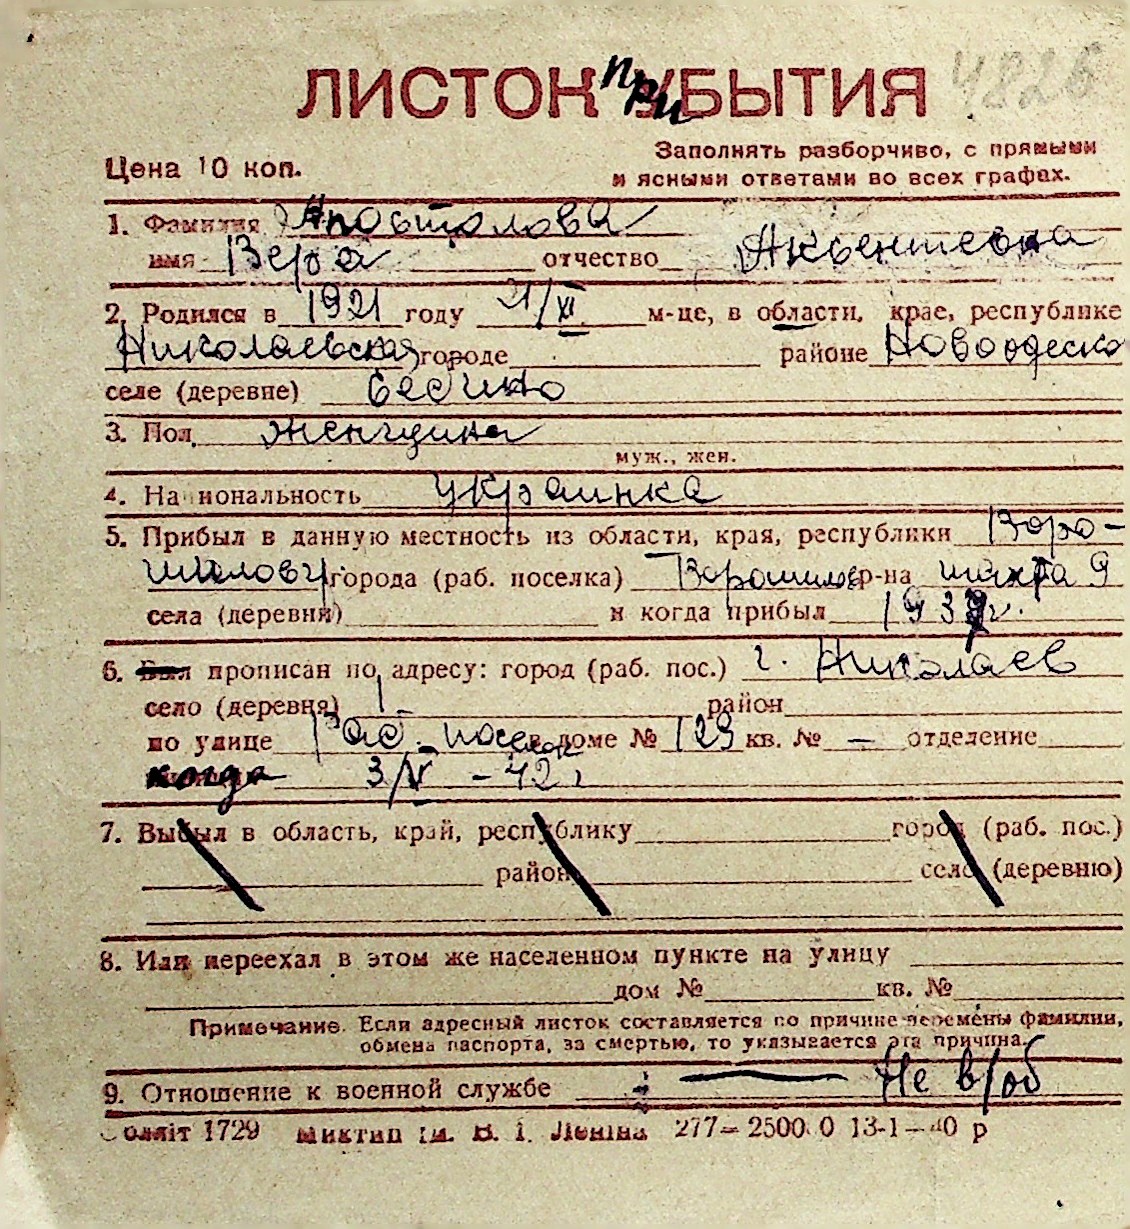 ЛИСТОК ПРИБЫТИЯ 4826
Цена 10 коп.
Заполнять разборчиво, с прямыми
и ясными ответами во всех графах.
1. Фамилия Апостолова
имя Вера отчество Аксентевна
2. Родился в 1921 году 21/XI м-це, в области, крае, республике
Николаевская городе районе Новоодеско
селе (деревне)
3. Пол женщина
муж., жен.
4. Национальность украинка
5. Прибыл в данную местность из области, края, республики Воро-
шиловгр города (раб. поселка) Ворошилов р-на шахта 9
села (деревни) и когда прибыл 1939 г.
6. Был прописан по адресу: город (раб. пос.) г. Николаев
село (деревня) – район
по улице Раб. поселок в доме № 129 кв. № — отделение
когда 3/V - 42 г
7. Выбыл в область, край, республику город (раб. пос.)
район село (деревню)
8. Или переехал в этом же населенном пункте на улицу
дом № кв. №
Примечание. Если адресный листок составляется по причине перемены фамилии,
обмена паспорта, за смертью, то указывается эта причина.
9. Отношение к военной службе — Не в/об
Облліт 1729 Миктип ім. В. І. Леніна 277—25000 13-1—40 р